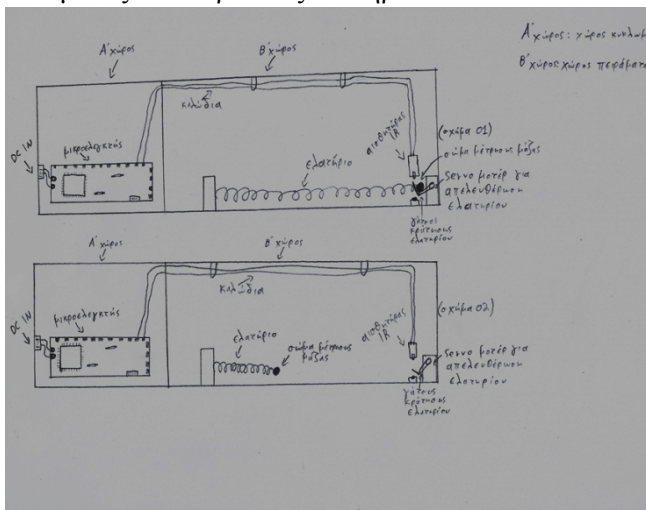 Α' χώρος
Β' χώρος
Α' χώρος: χώρος
Β' χώρος: χώρος
καλώδια
DC IN
μικροελεγκτής
ελατήριο
αισθητήρας
IR
(σχήμα 01)
σώμα μέτρησης μάζας
servo μοτέρ για
απελευθέρωση
ελατηρίου
γάτζος
κράτησης
ελατηρίου
Α' χώρος
Β' χώρος
καλώδια
DC IN
μικροελεγκτής
ελατήριο
σώμα μέτρησης
μάζας
αισθητήρας
IR
(σχήμα 02)
servo μοτέρ για
απελευθέρωση
ελατηρίου
γάτζος
κράτησης
ελατηρίου